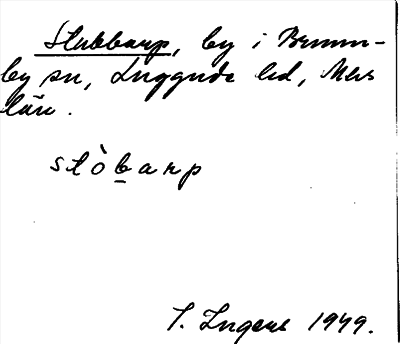 Stubbarp, by i Brunn-
by sn, Luggude hd, Mlhs
län.
stòbarp
S. Ingers 1949.